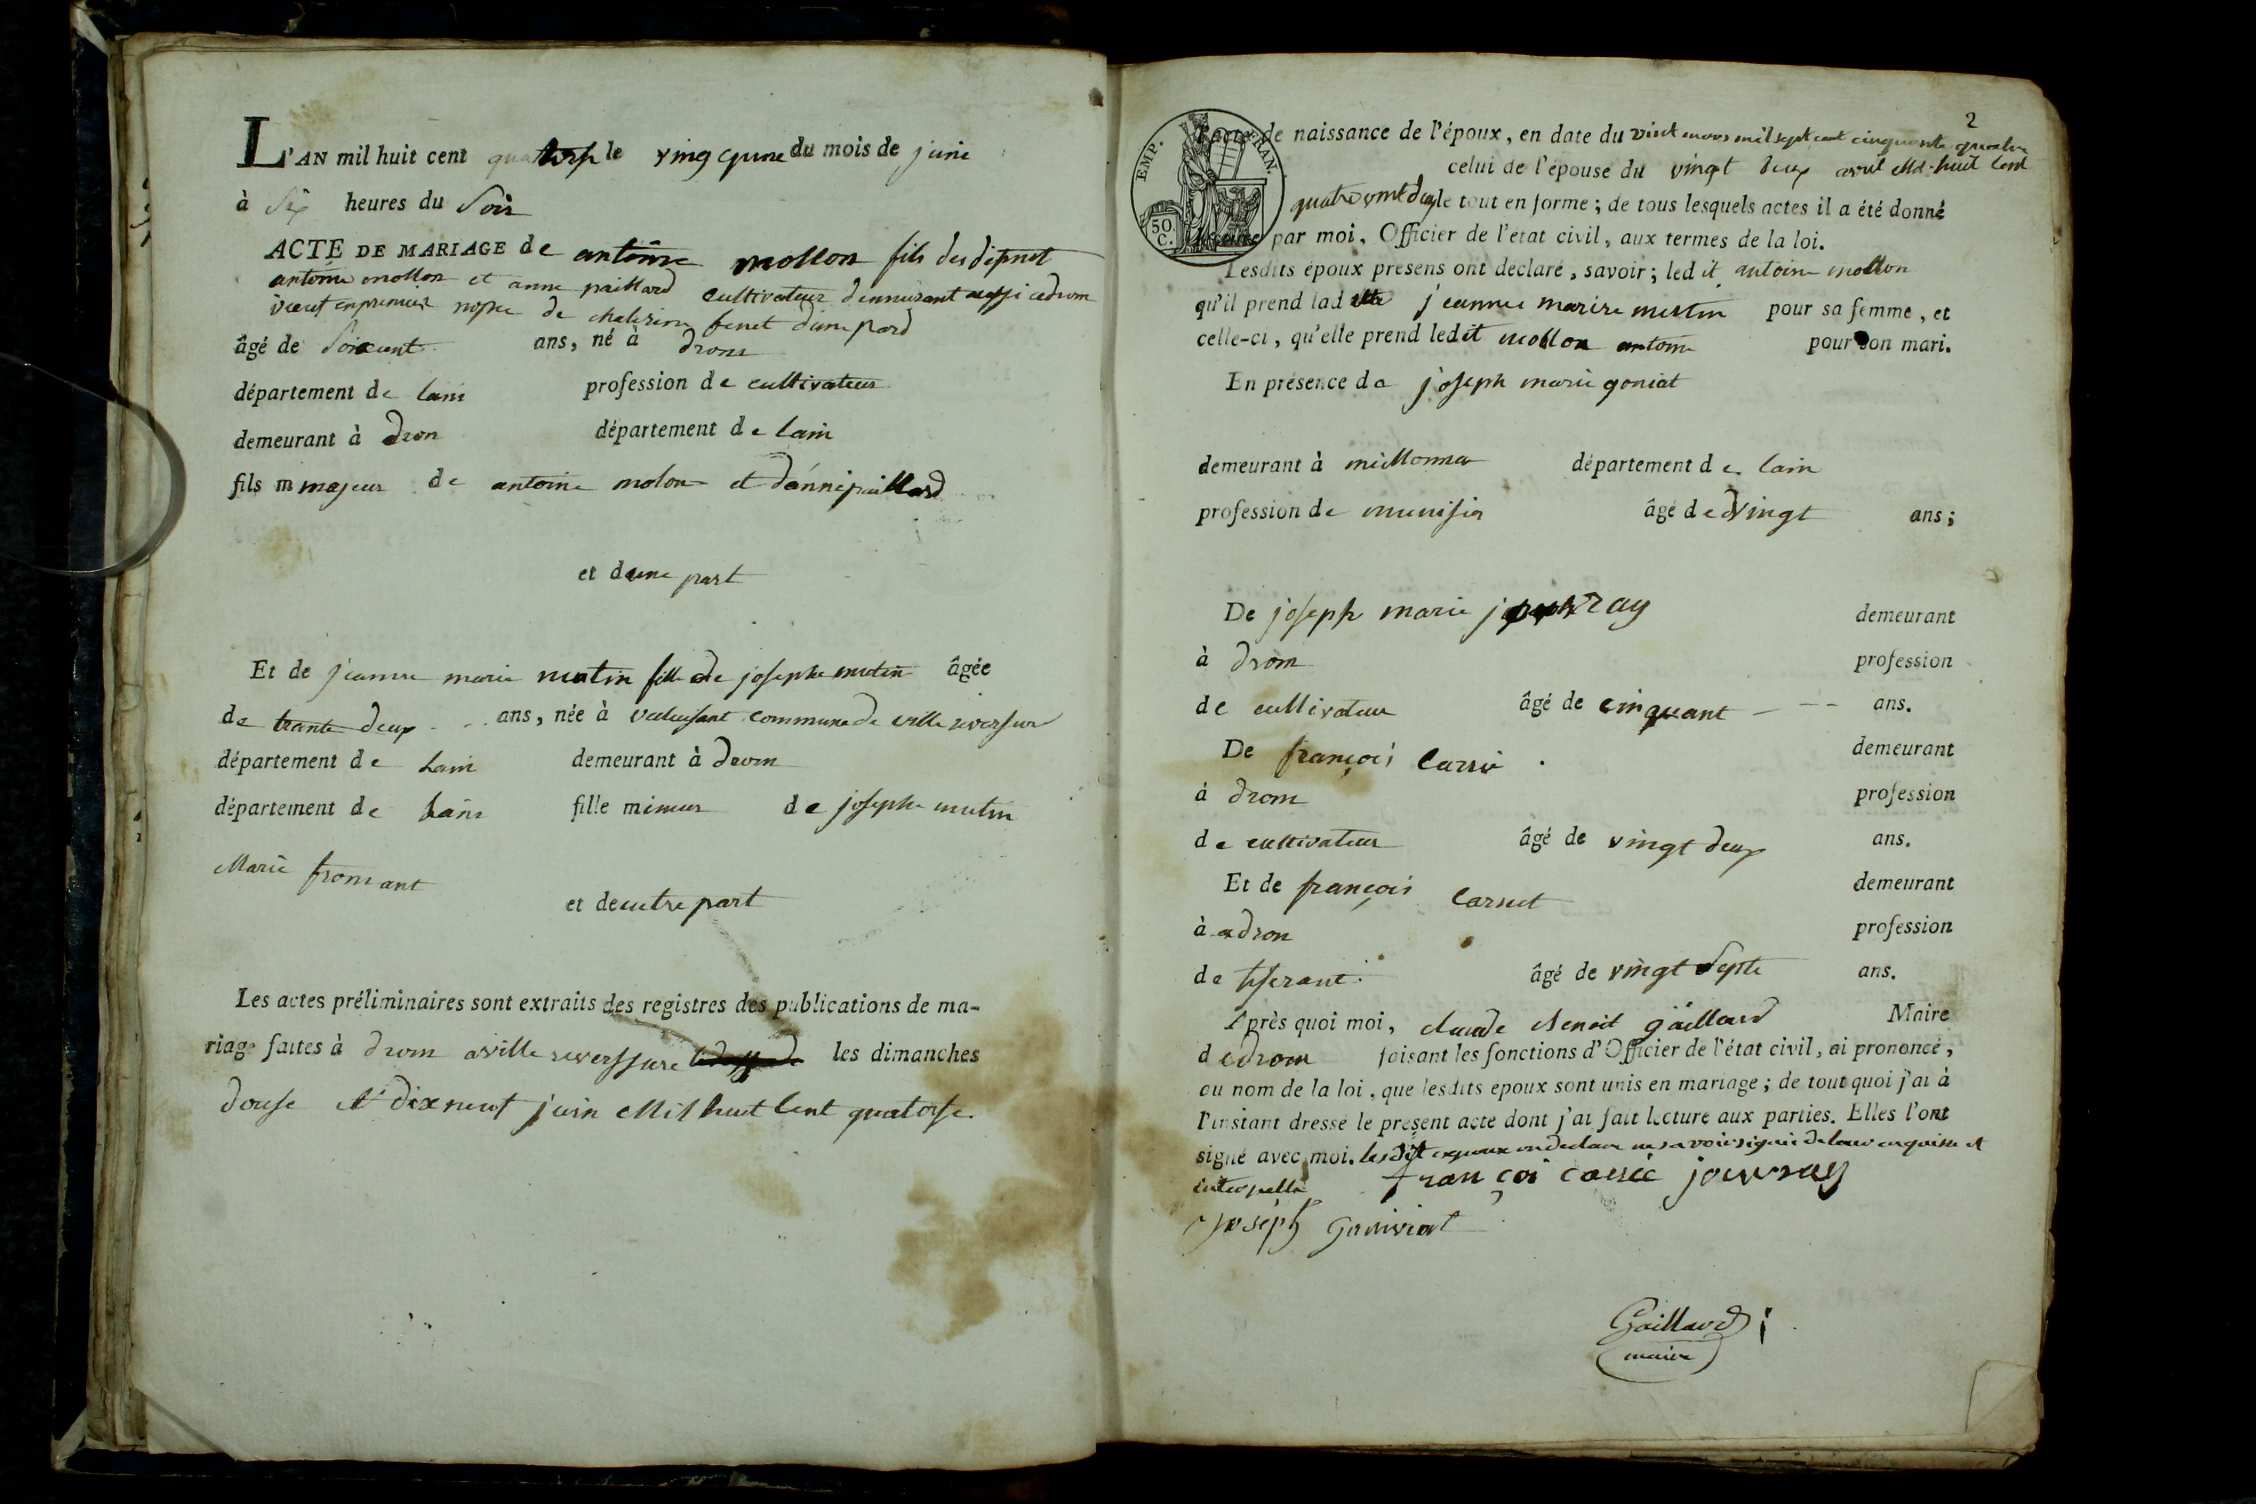 L'AN mil huit cent quatorse le ving du mois de juin
à Six heures du Soir
ACTE DE MARIAGE de antoine mollon fils des
antoine mollon et anne paillard cultivateur demeurant aussi adrom
en premier de d'une pard
âgé de Soixcent ans, né à drom
département de lain profession de cultivateur
demeurant à dron département de lain
fils m majeur de antoine molon et d'anne paillard
et d'une part
Et de jeanne marie mutin fille de josephe mutin âgée
de trante deux ans, née à commune de ville reversure
département de Lain demeurant à drom
département de Lain fille mineur de josephe mutin
Marie fromant
et de autre part
Les actes préliminaires sont extraits des registres des publications de ma-
riage faites à drom aville reverssure les dimanches
douse et dixneuf juin Mil huit Cent quatorse
2
EMP. FRAN.
50 C.
l'acte de naissance de l'époux, en date du vint mil sept cent cinquante quatre
celui de l'épouse du vingt deux avril Mil huit Cent
quatre le tout en forme ; de tous lesquels actes il a été donné
lecture par moi, Officier de l'état civil, aux termes de la loi.
Lesdits époux présens ont déclaré, savoir ; led it antoine mollon
qu'il prend lad jeanne marie mutin pour sa femme, et
celle-ci, qu'elle prend ledit mollon antoine pour son mari.
En présence de joseph marie goniat
demeurant à département de lain
profession de âgé de vingt ans ;
De joseph marie demeurant
à drom profession
de cultivateur âgé de cinquant ans.
De françois Carrié demeurant
à drom profession
de cultivateur âgé de vingt deux ans.
Et de françois Carnet demeurant
à adron profession
de tiserant âgé de vingt Septe ans.
Après quoi moi, claude Benoit gaillard Maire
de drom faisant les fonctions d'Officier de l'état civil, ai prononcé,
au nom de la loi, que lesdits époux sont unis en mariage ; de tout quoi j'ai à
l'instant dressé le présent acte dont j'ai fait lecture aux parties. Elles l'ont
signé avec moi. les dit epoux on declare ne savoir signé de leur enquise et
interpellé françoi carrié jouvray
Joseph
Gaillard
maire